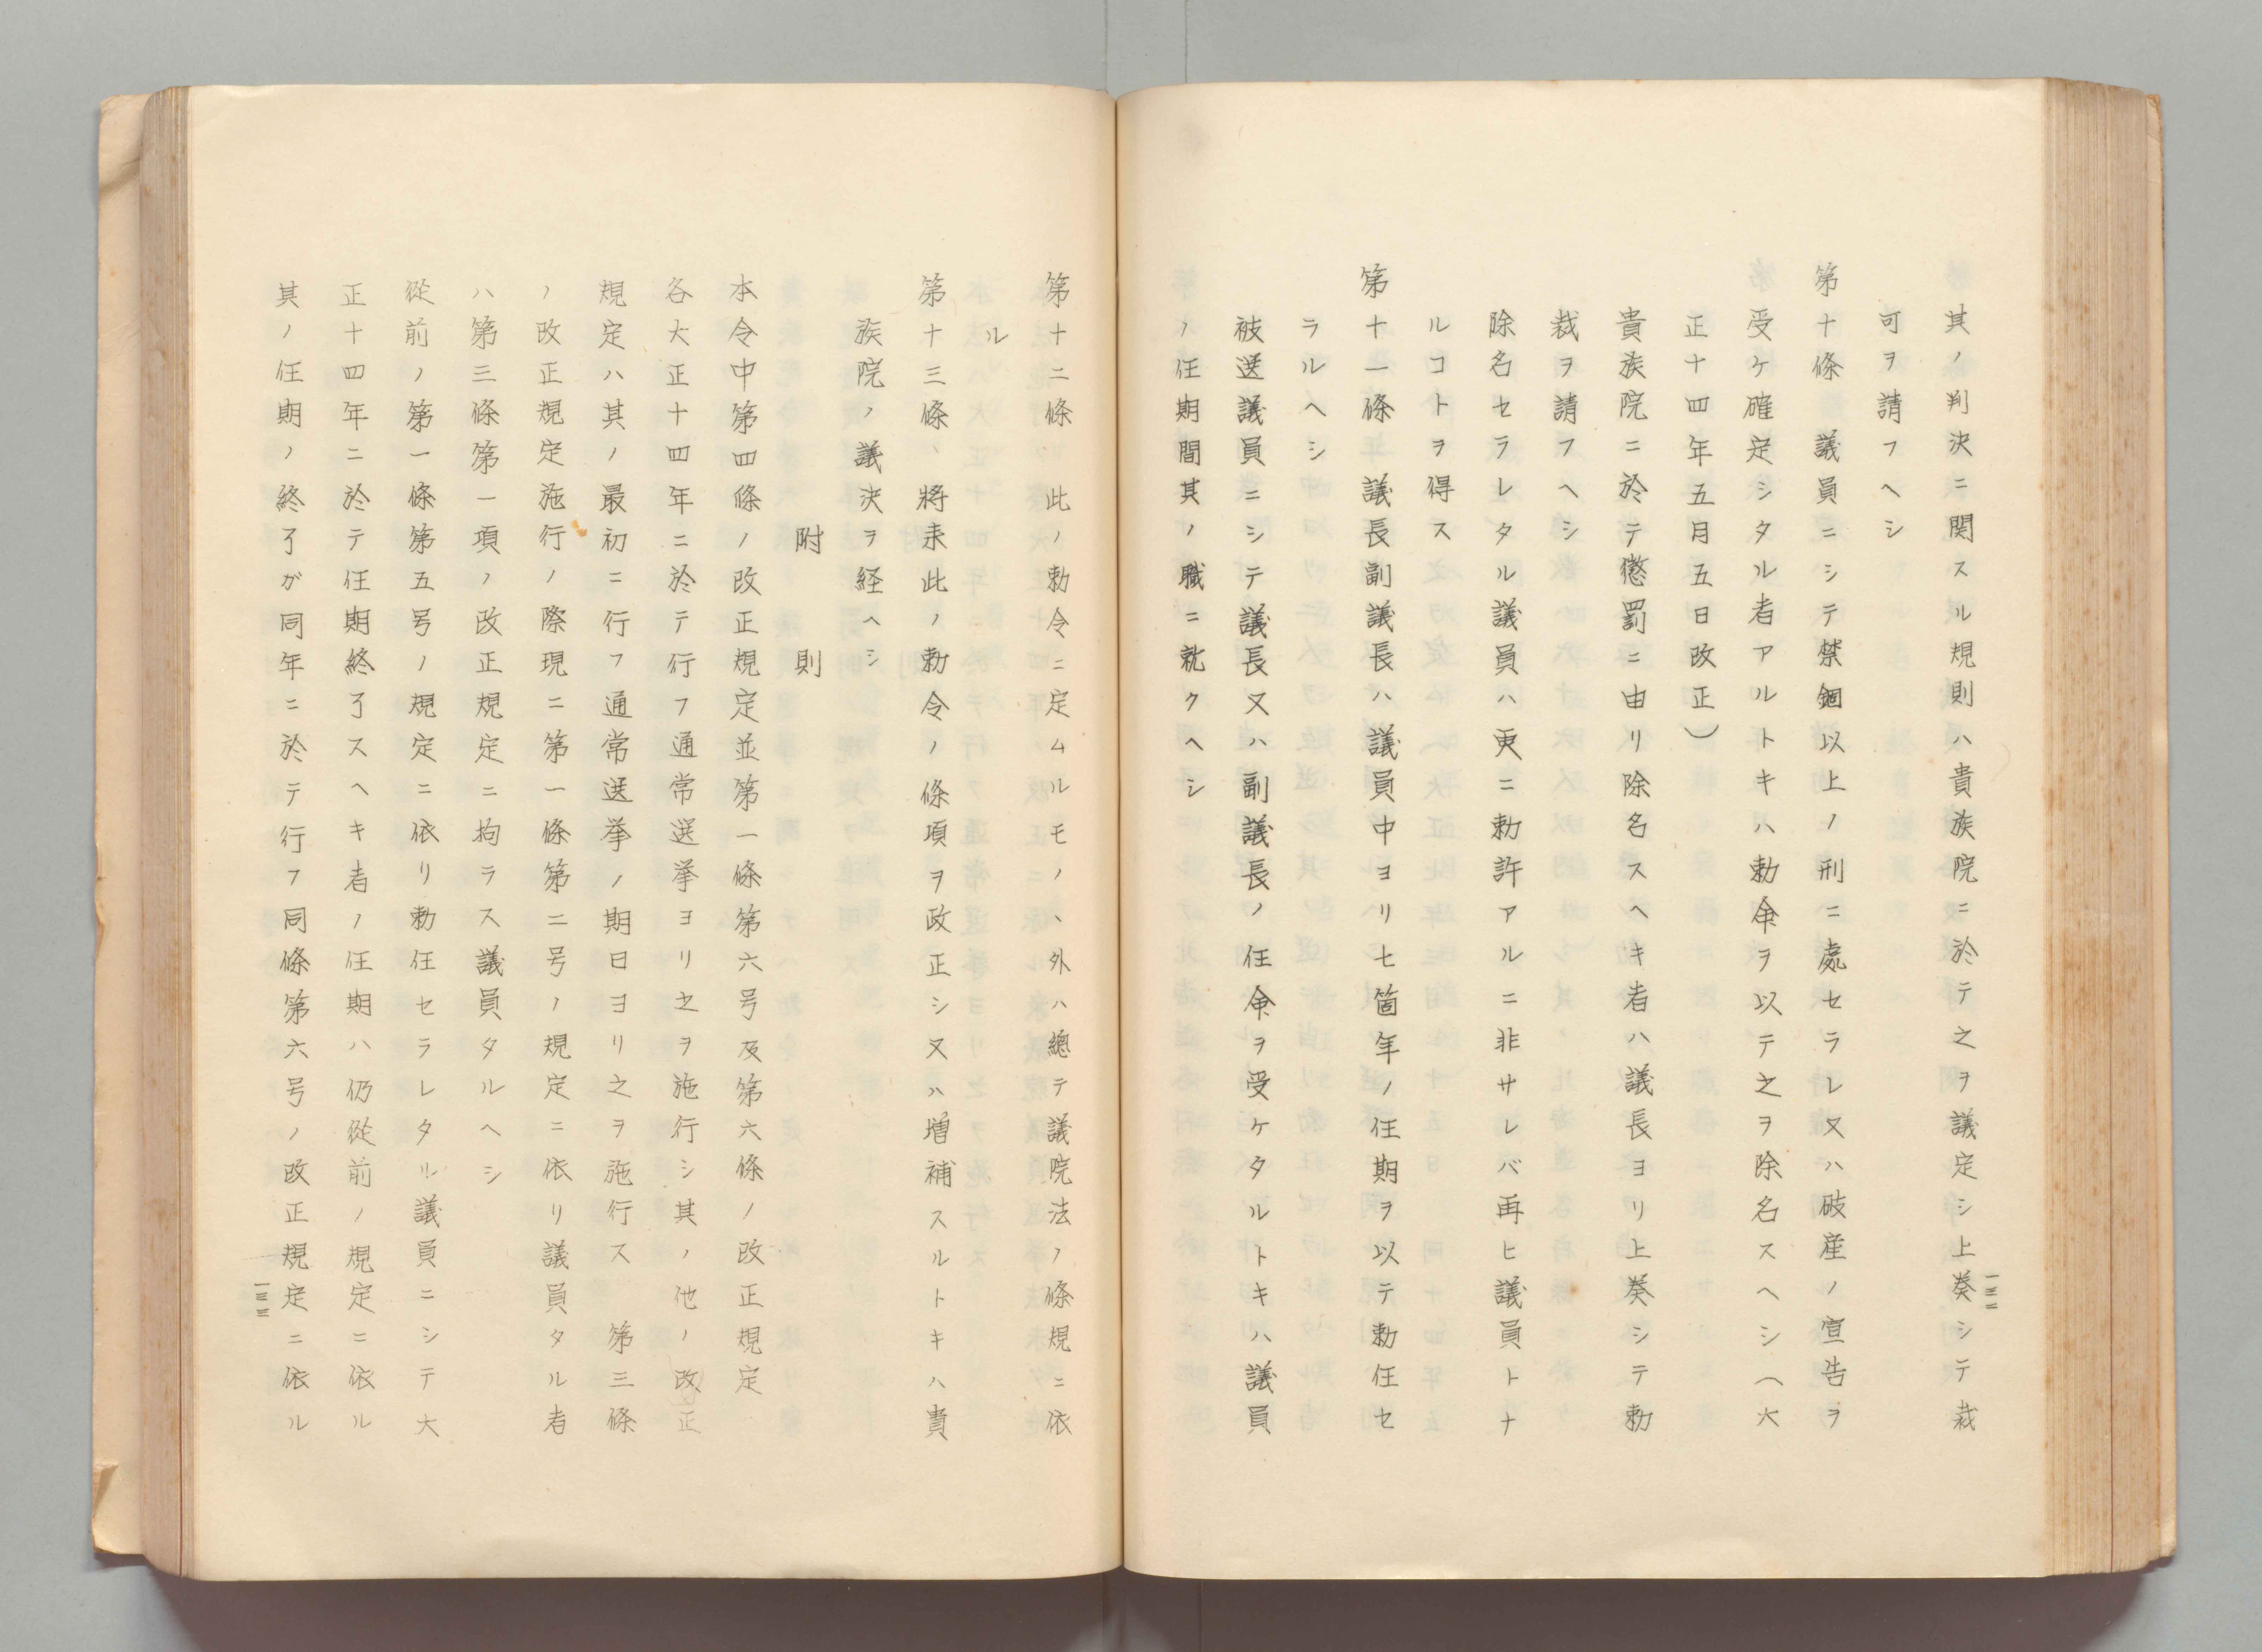 其ノ判決ニ関スル規則ハ貴族院ニ於テ之ヲ議定シ上奏シテ裁
可ヲ請フヘシ
第十條　議員ニシテ禁錮以上ノ刑ニ處セラレ又ハ破産ノ宣告ヲ
受ケ確定シタル者アルトキハ勅命ヲ以テ之ヲ除名スヘシ（大
正十四年五月五日改正）
貴族院ニ於テ懲罰ニ由リ除名スヘキ者ハ議長ヨリ上奏シテ勅
裁ヲ請フヘシ
除名セラレタル議員ハ更ニ勅許アルニ非サレバ再ヒ議員トナ
ルコトヲ得ス
第十一條　議長副議長ハ議員中ヨリ七箇年ノ任期ヲ以テ勅任セ
ラルヘシ
被選議員ニシテ議長又ハ副議長ノ任命ヲ受ケタルトキハ議員
ノ任期間其ノ職ニ就クヘシ
一三二
第十二條　此ノ勅令ニ定ムルモノヽ外ハ總テ議院法ノ條規ニ依
ル
第十三條、將来此ノ勅令ノ條項ヲ改正シ又ハ増補スルトキハ貴
族院ノ議決ヲ経ヘシ
附　則
本令中第四條ノ改正規定並第一條第六号及第六條ノ改正規定
各大正十四年ニ於テ行フ通常選挙ヨリ之ヲ施行シ其ノ他ノ改正
規定ハ其ノ最初ニ行フ通常選挙ノ期日ヨリ之ヲ施行ス　第三條
ノ改正規定施行ノ際現ニ第一條第二号ノ規定ニ依リ議員タル者
ハ第三條第一項ノ改正規定ニ拘ラス議員タルヘシ
從前ノ第一條第五号ノ規定ニ依リ勅任セラレタル議員ニシテ大
正十四年ニ於テ任期終了スヘキ者ノ任期ハ仍從前ノ規定ニ依ル
其ノ任期ノ終了ガ同年ニ於テ行フ同條第六号ノ改正規定ニ依ル
一三三